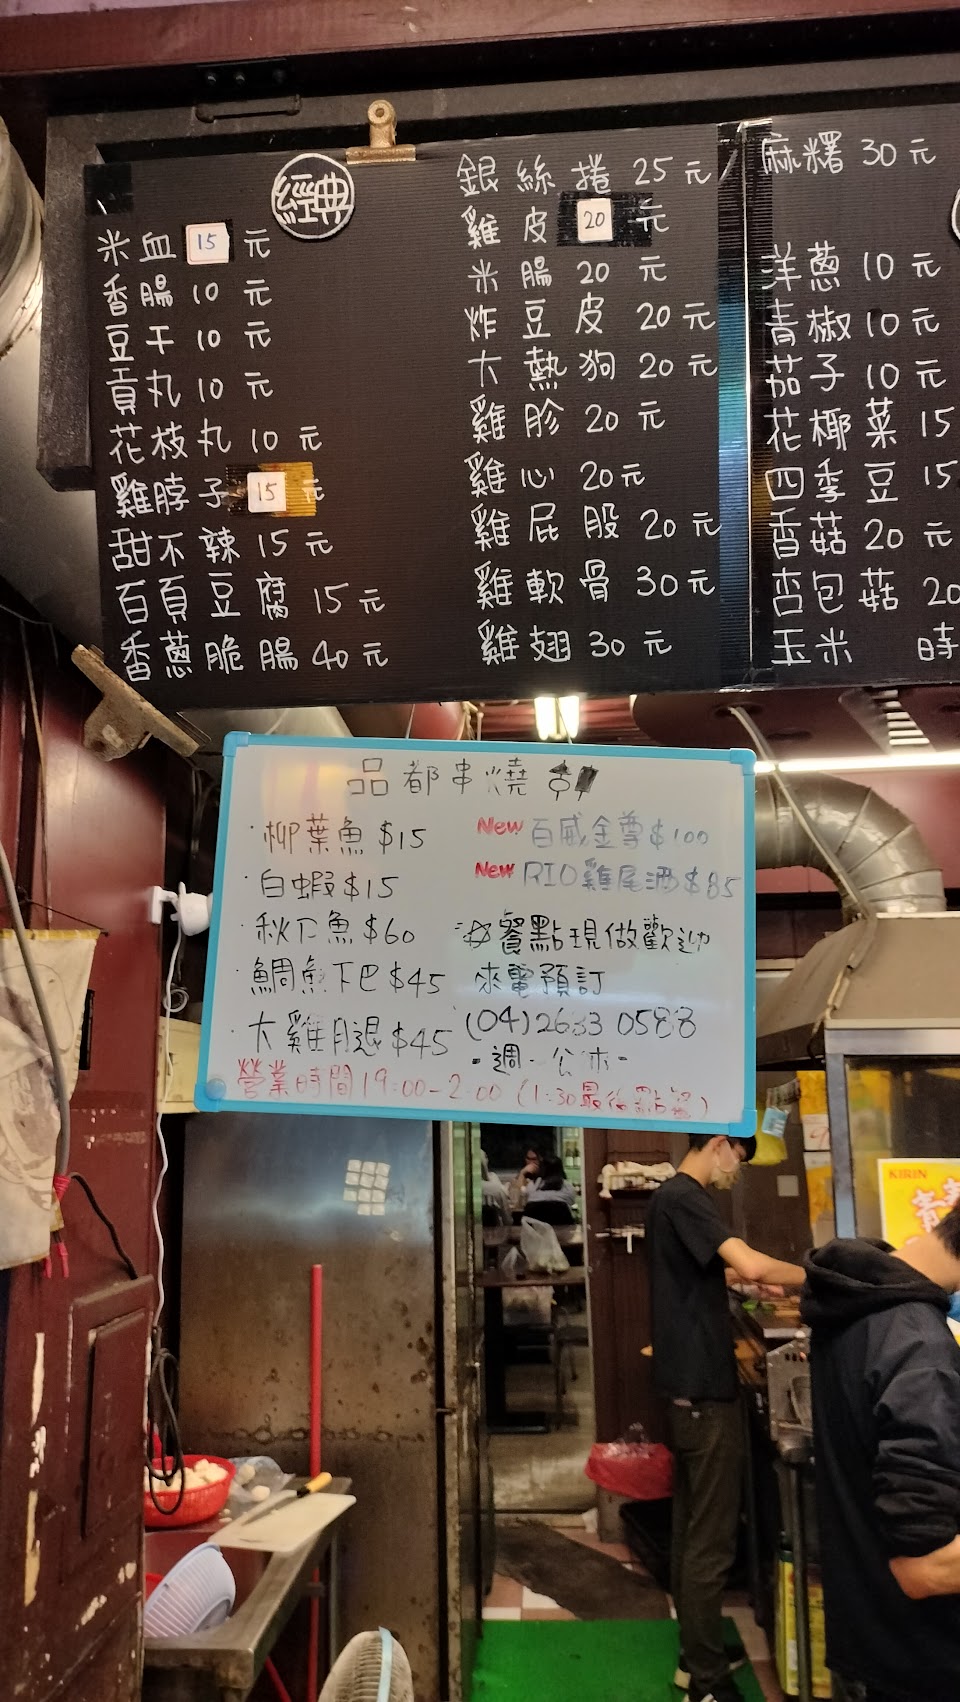 經典
米血 15 元
香腸 10 元
豆干 10 元
貢丸 10 元
花枝丸 10 元
雞脖子 15 元
甜不辣 15 元
百頁豆腐 15 元
香蔥脆腸 40 元
銀絲捲 25 元
雞皮 20 元
米腸 20 元
炸豆皮 20 元
大熱狗 20 元
雞胗 20 元
雞心 20 元
雞屁股 20 元
雞軟骨 30 元
雞翅 30 元
麻糬 30 元
洋蔥 10 元
青椒 10 元
茄子 10 元
花椰菜 15
四季豆 15
香菇 20 元
杏包菇 20
玉米 時
品都串燒
柳葉魚 $15
白蝦 $15
秋刀魚 $60
鯛魚下巴 $45
大雞腿 $45
New 百威金尊 $100
New RIO雞尾酒 $85
餐點現做歡迎
來電預訂
(04)2633 0588
-週 公休-
營業時間 19:00-2:00 (1:30最後點餐)
KIRIN